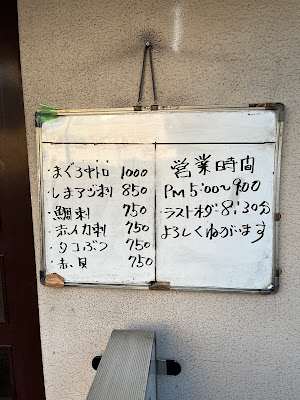 ・まぐろ中トロ 1000
・しまアジ刺 850
・鯛刺 750
・赤イカ刺 750
・タコぶつ 750
・赤貝 750
営業時間
PM 5:00〜9:00
ラストオーダ 8:30分
よろしくねがいます